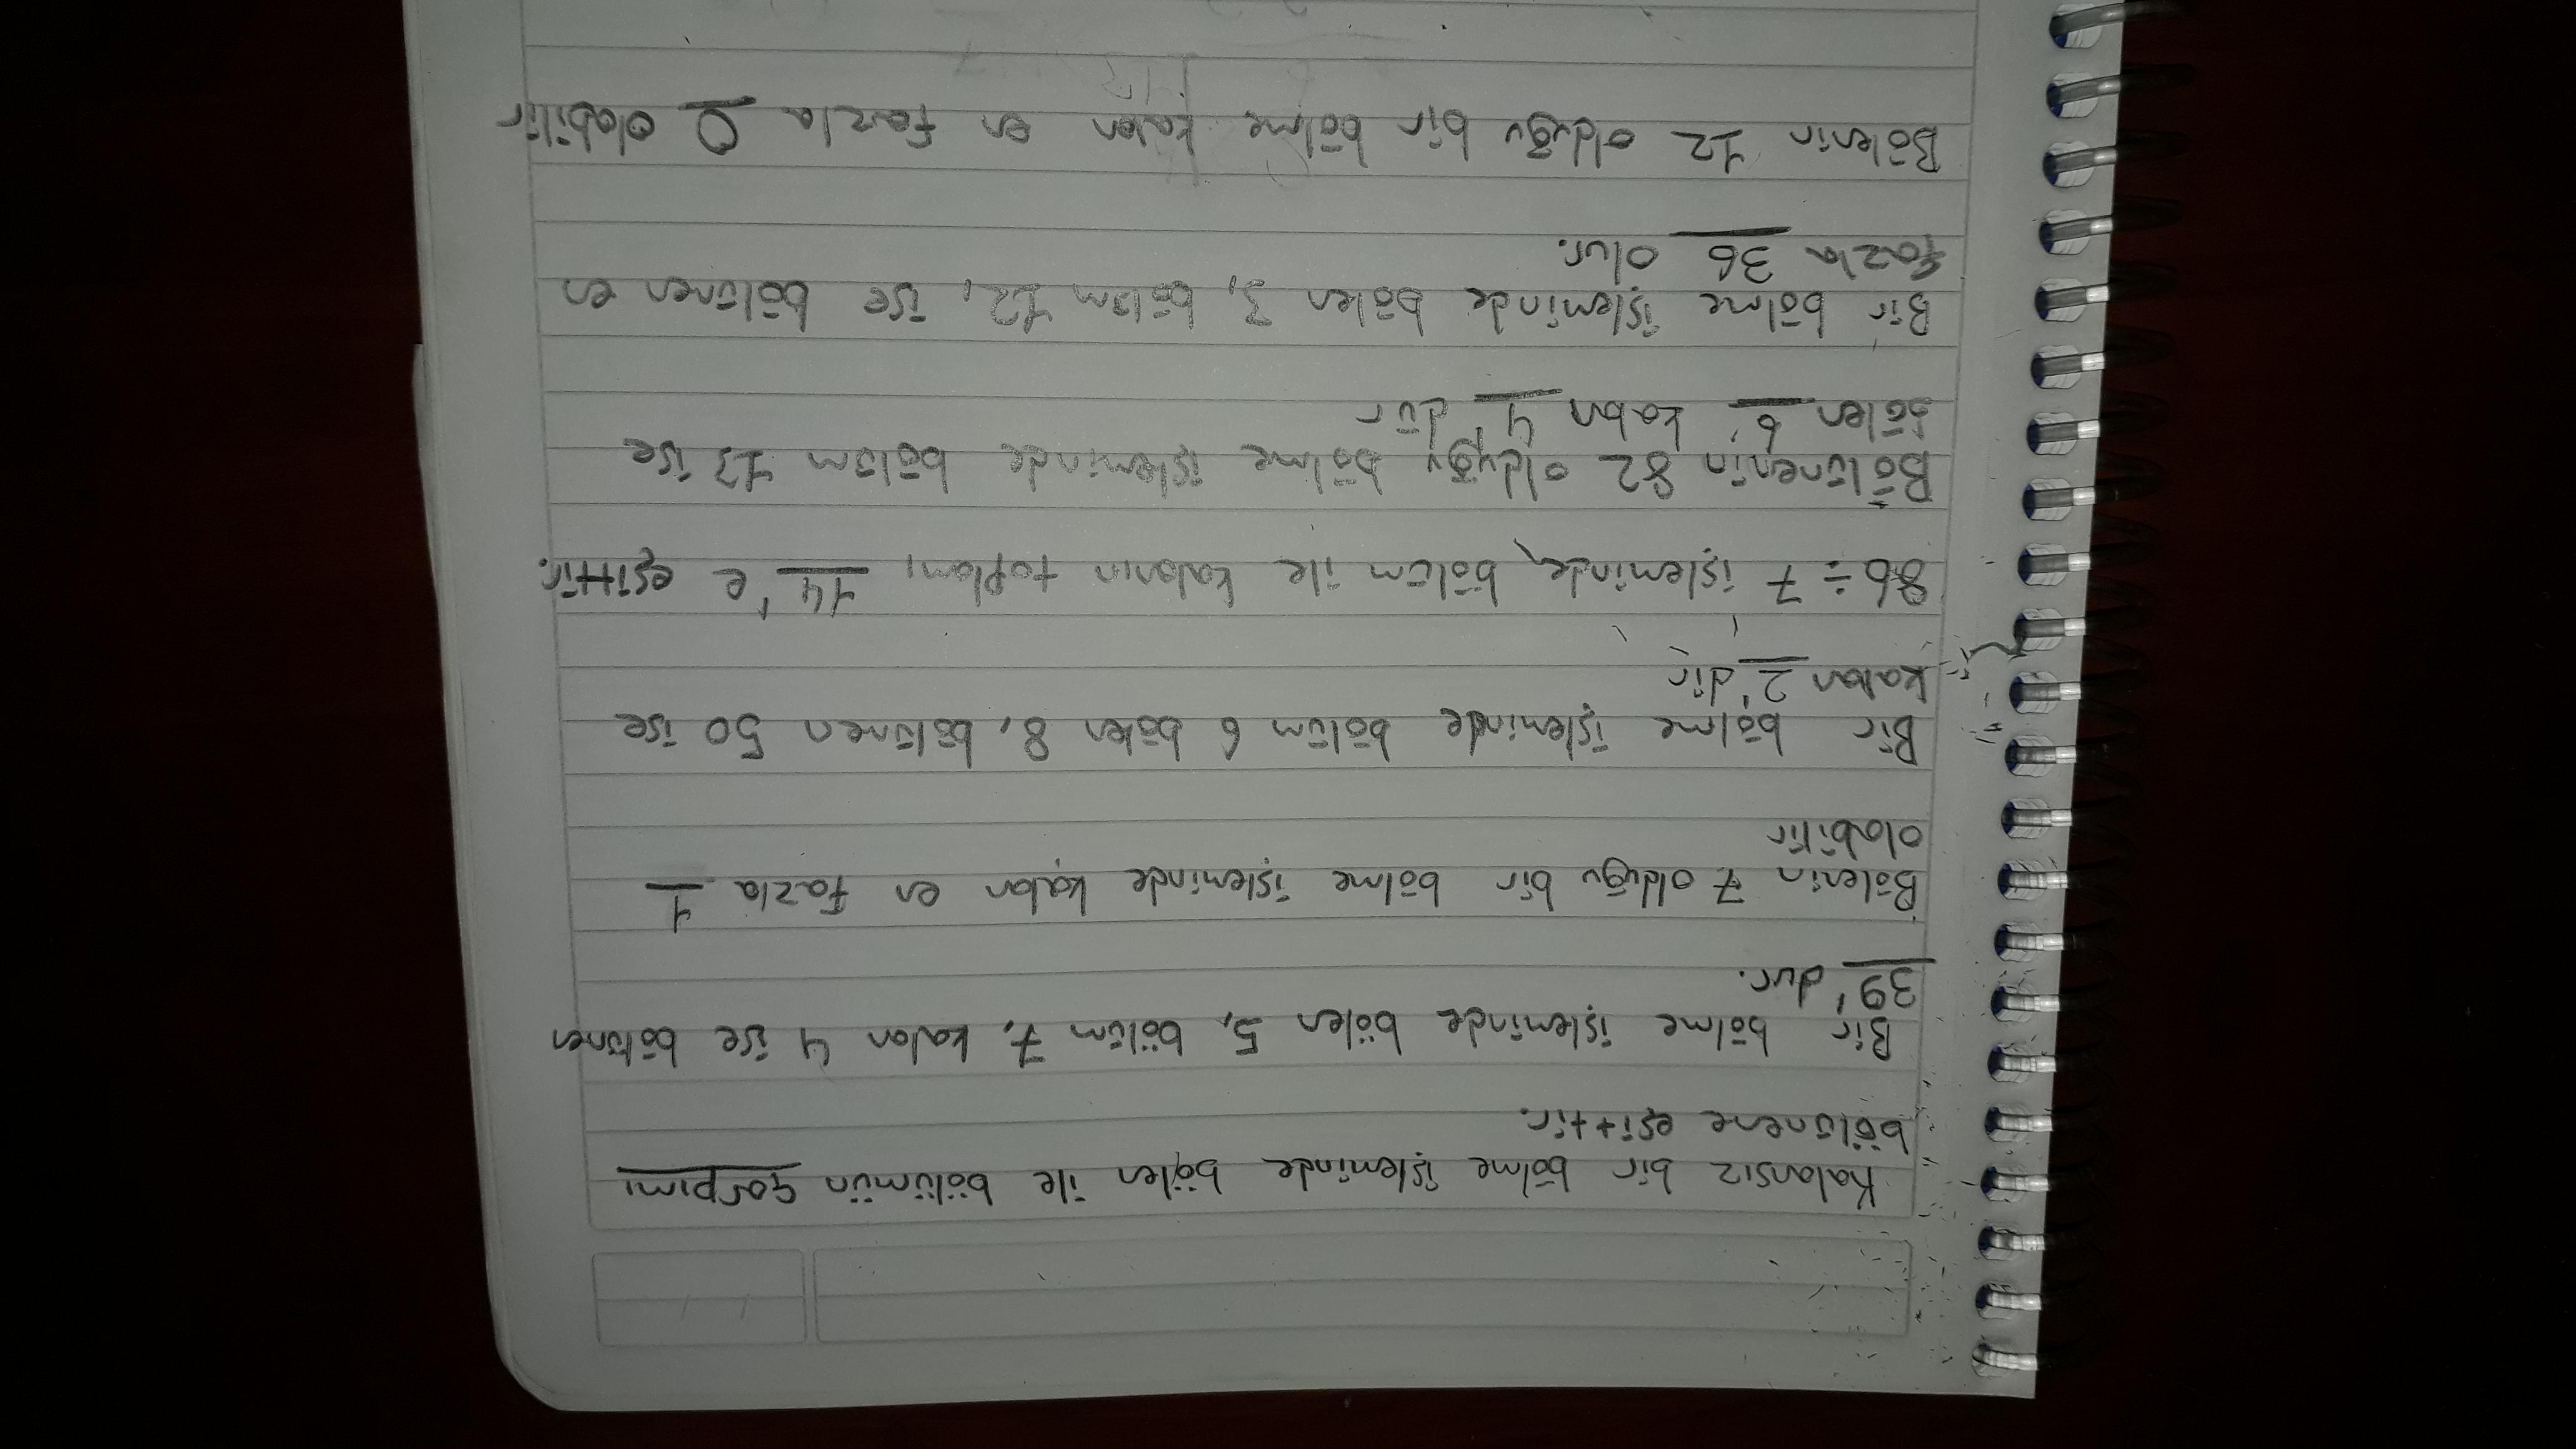 Kalansız bir bölme işleminde bölen ile bölümün çarpımı
bölünene eşittir.
Bir bölme işleminde bölen 5, bölüm 7, kalan 4 ise bölünen
39'dur.
Bölenin 7 olduğu bir bölme işleminde kalan en fazla 1
olabilir
Bir bölme işleminde bölüm 6 bölen 8, bölünen 50 ise
kalan 2'dir
86 ÷ 7 işleminde, bölüm ile kalanın toplamı 14'e eşittir.
Bölünenin 82 olduğu bölme işleminde bölüm 13 ise
bölen 6, kalan 4 dür
Bir bölme işleminde bölen 3, bölüm 12, ise bölünen en
fazla 36 olur.
Bölenin 12 olduğu bir bölme kalan en fazla 0 olabilir